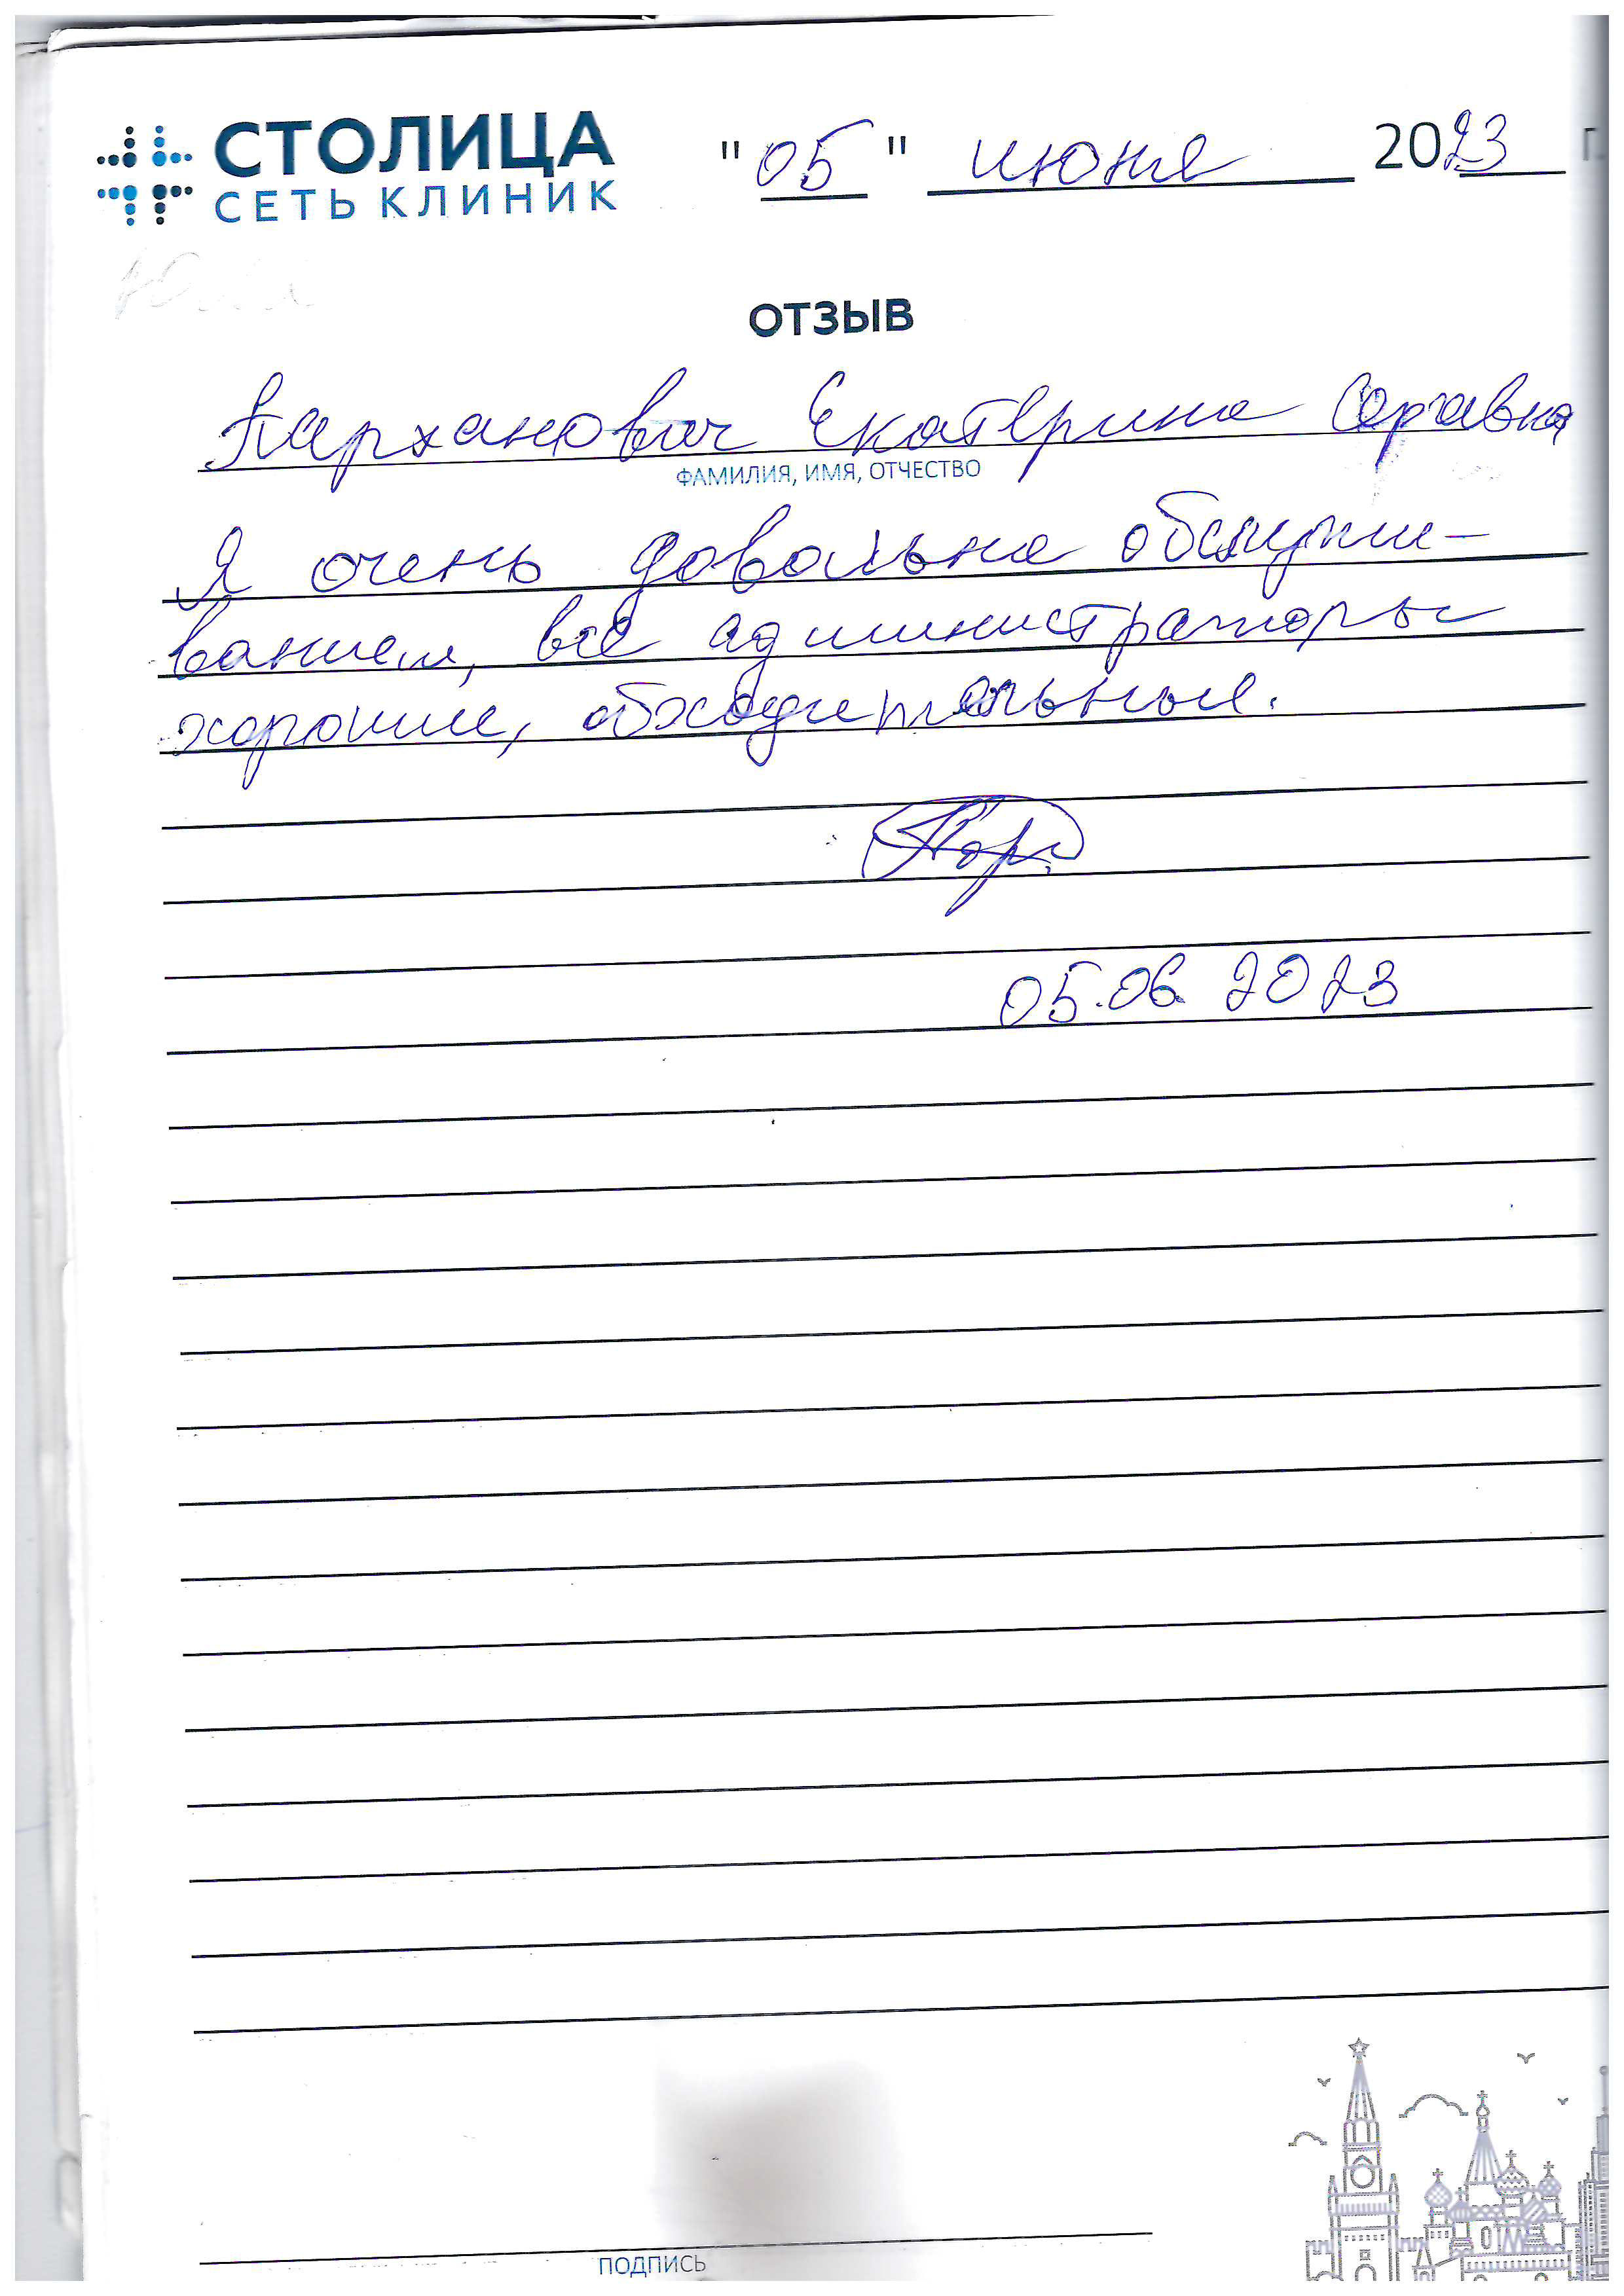 СТОЛИЦА
СЕТЬ КЛИНИК
"05" июня 2023 г.
ОТЗЫВ
Карханович Екатерина Сергевна
ФАМИЛИЯ, ИМЯ, ОТЧЕСТВО
Я очень довольна обслужи-
ванием, все администраторы
хорошие, обходительные.
05.06 2023
ПОДПИСЬ